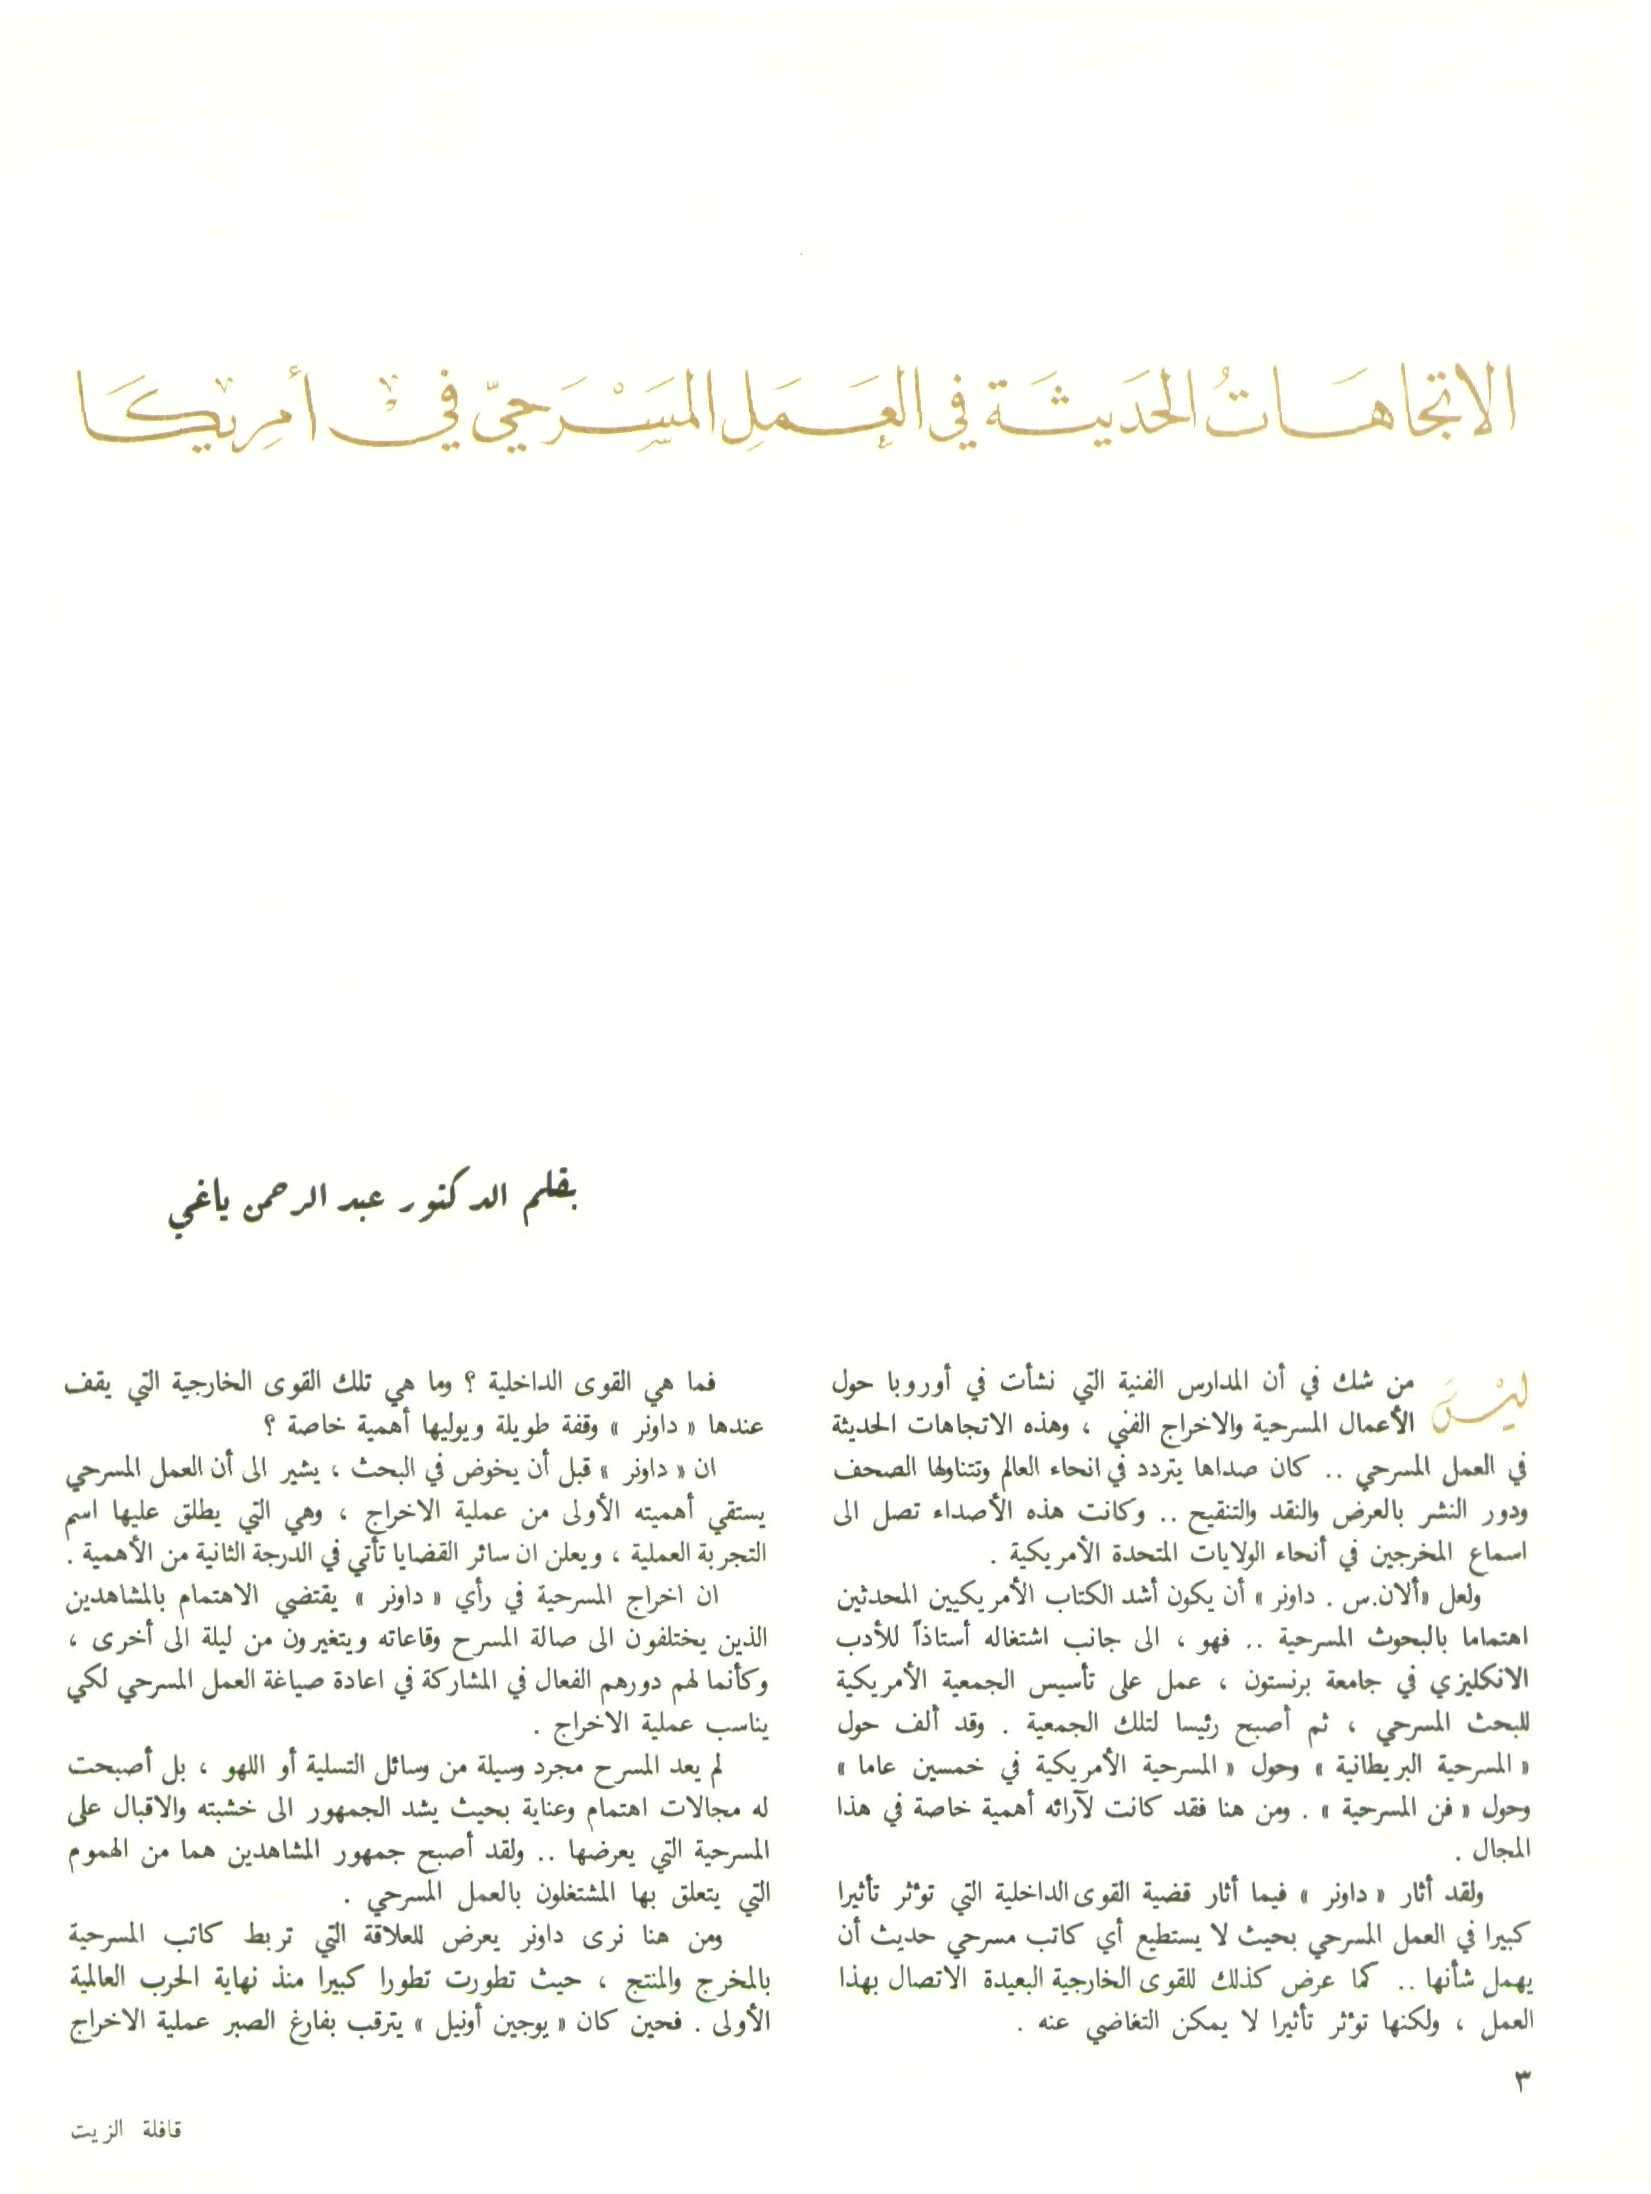 الاتجاهَاتُ الحَديثَة في العَمَلِ المَسْرَحيّ في أمِريكَا
بقلم الدكتور عبد الرحمن ياغي
ليْسَ من شك في أن المدارس الفنية التي نشأت في أوروبا حول
الأعمال المسرحية والاخراج الفني ، وهذه الاتجاهات الحديثة
في العمل المسرحي .. كان صداها يتردد في انحاء العالم وتتناولها الصحف
ودور النشر بالعرض والنقد والتنقيح .. وكانت هذه الأصداء تصل الى
اسماع المخرجين في أنحاء الولايات المتحدة الأمريكية .
ولعل «ألان.س . داونر» أن يكون أشد الكتاب الأمريكيين المحدثين
اهتماما بالبحوث المسرحية .. فهو ، الى جانب اشتغاله أستاذاً للأدب
الانكليزي في جامعة برنستون ، عمل على تأسيس الجمعية الأمريكية
للبحث المسرحي ، ثم أصبح رئيسا لتلك الجمعية . وقد ألف حول
« المسرحية البريطانية » وحول « المسرحية الأمريكية في خمسين عاما »
وحول « فن المسرحية » . ومن هنا فقد كانت لآرائه أهمية خاصة في هذا
المجال .
ولقد أثار « داونر » فيما أثار قضية القوى الداخلية التي تؤثر تأثيرا
كبيرا في العمل المسرحي بحيث لا يستطيع أي كاتب مسرحي حديث أن
يهمل شأنها .. كما عرض كذلك للقوى الخارجية البعيدة الاتصال بهذا
العمل ، ولكنها تؤثر تأثيرا لا يمكن التغاضي عنه .
فما هي القوى الداخلية ؟ وما هي تلك القوى الخارجية التي يقف
عندها « داونر » وقفة طويلة ويوليها أهمية خاصة ؟
ان « داونر » قبل أن يخوض في البحث ، يشير الى أن العمل المسرحي
يستقي أهميته الأولى من عملية الاخراج ، وهي التي يطلق عليها اسم
التجربة العملية ، ويعلن ان سائر القضايا تأتي في الدرجة الثانية من الأهمية .
ان اخراج المسرحية في رأي « داونر » يقتضي الاهتمام بالمشاهدين
الذين يختلفون الى صالة المسرح وقاعاته ويتغيرون من ليلة الى أخرى ،
وكأنما لهم دورهم الفعال في المشاركة في اعادة صياغة العمل المسرحي لكي
يناسب عملية الاخراج .
لم يعد المسرح مجرد وسيلة من وسائل التسلية أو اللهو ، بل أصبحت
له مجالات اهتمام وعناية بحيث يشد الجمهور الى خشبته والاقبال على
المسرحية التي يعرضها .. ولقد أصبح جمهور المشاهدين هما من الهموم
التي يتعلق بها المشتغلون بالعمل المسرحي .
ومن هنا نرى داونر يعرض للعلاقة التي تربط كاتب المسرحية
بالمخرج والمنتج ، حيث تطورت تطورا كبيرا منذ نهاية الحرب العالمية
الأولى . فحين كان « يوجين أونيل » يترقب بفارغ الصبر عملية الاخراج
٣
قافلة الزيت